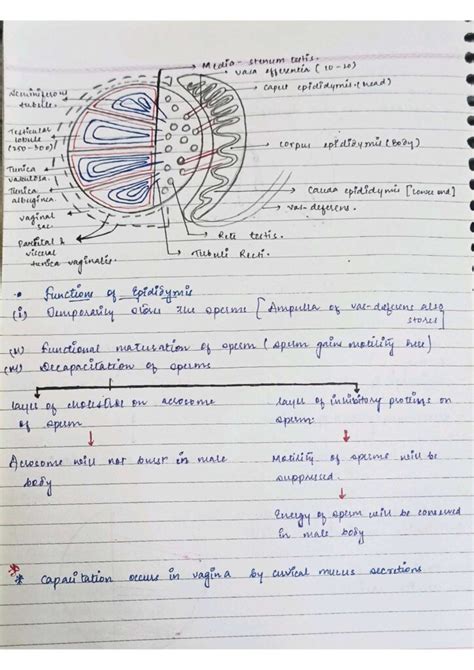 Media-stenum testis.
vasa efferentia (10-20)
Caput epididymis (head)
Corpus epididymis (Body)
Cauda epididymis [lower end]
vas-deferens.
Rete testis.
Tubuli Recti.
Seminiferous
tubule.
Testicular
lobule
(250-300)
Tunica
vasculosa.
Tunica
albuginea.
vaginal
sac.
Parietal &
visceral
tunica vaginalis.
• Functions of Epididymis
(i) Temporarily stores the sperms [Ampulla of vas-deferens also
stores]
(ii) Functional maturation of sperm (sperm gains motility here)
(iii) Decapacitation of sperms
layer of cholesterol on acrosome
of sperm
Acrosome will not burst in male
body
layer of inhibitory proteins on
sperm.
Motility of sperms will be
suppressed.
Energy of sperm will be conserved
in male body
* Capacitation occurs in vagina by cervical mucus secretions